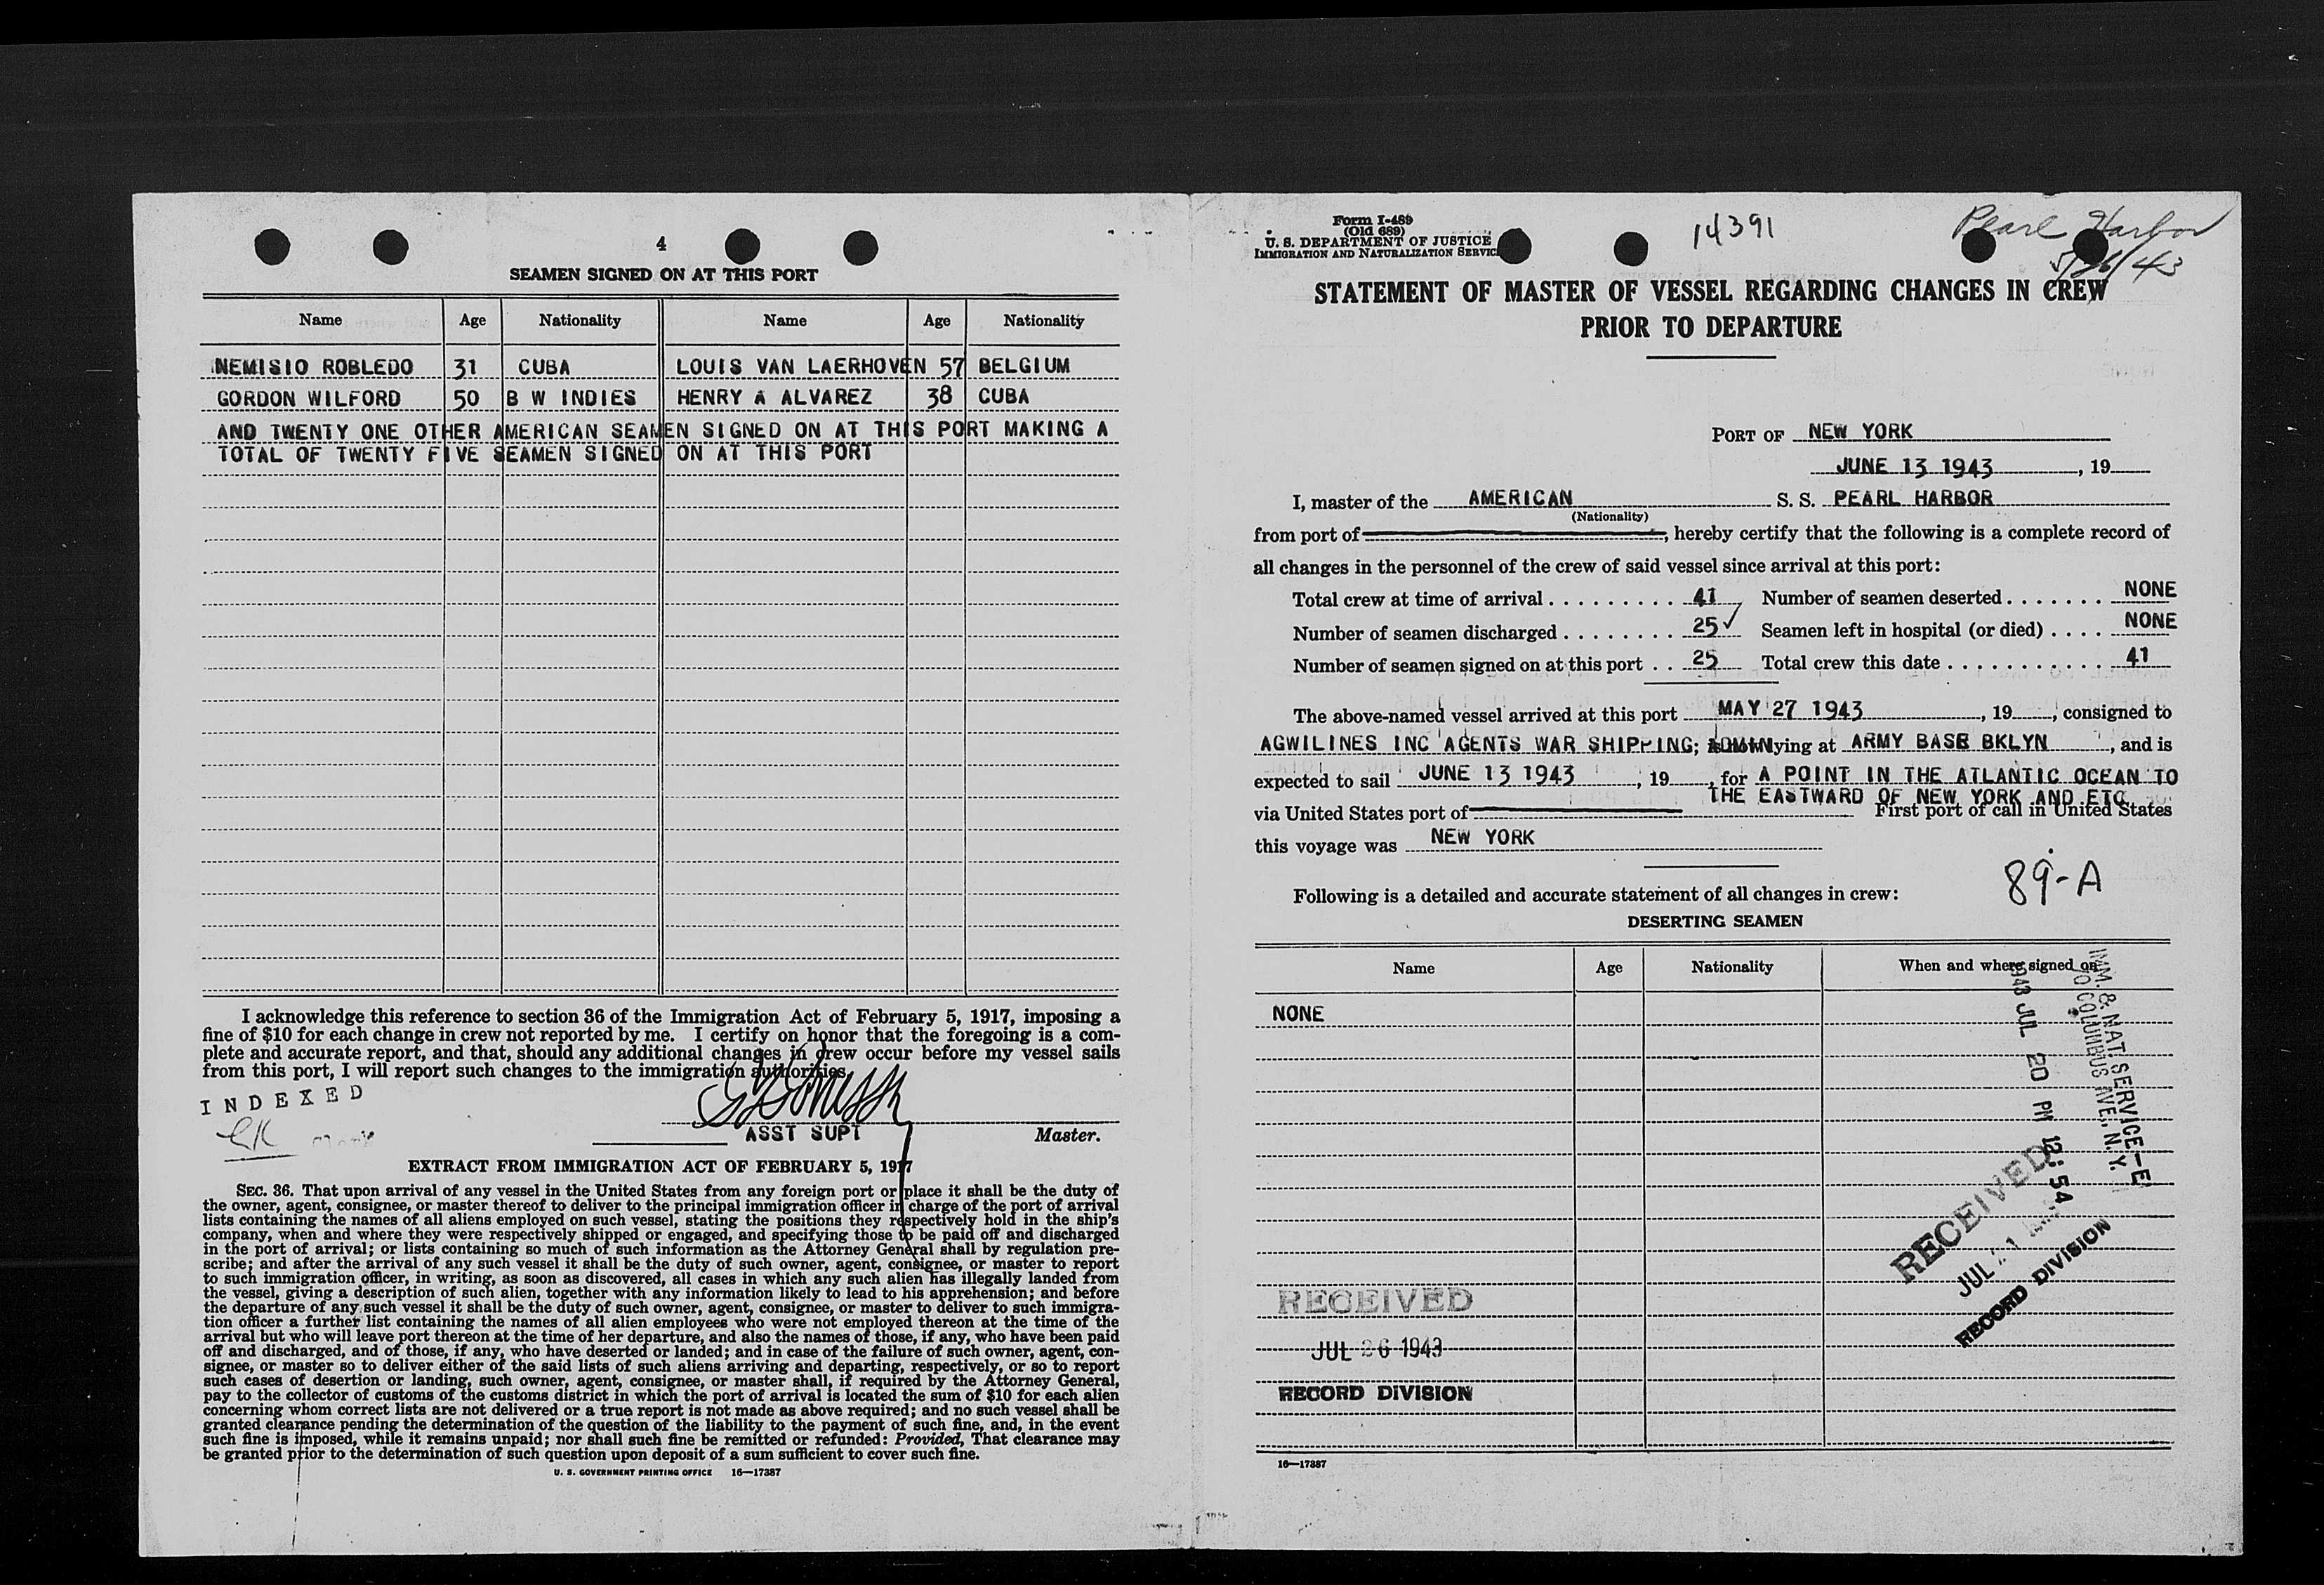 4
SEAMEN SIGNED ON AT THIS PORT
Name Age Nationality Name Age Nationality
NEMISIO ROBLEDO 31 CUBA LOUIS VAN LAERHOVEN 57 BELGIUM
GORDON WILFORD 50 B W INDIES HENRY A ALVAREZ 38 CUBA
AND TWENTY ONE OTHER AMERICAN SEAMEN SIGNED ON AT THIS PORT MAKING A
TOTAL OF TWENTY FIVE SEAMEN SIGNED ON AT THIS PORT
I acknowledge this reference to section 36 of the Immigration Act of February 5, 1917, imposing a
fine of $10 for each change in crew not reported by me. I certify on honor that the foregoing is a com-
plete and accurate report, and that, should any additional changes in crew occur before my vessel sails
from this port, I will report such changes to the immigration authorities.
INDEXED
ASST SUPT Master.
EXTRACT FROM IMMIGRATION ACT OF FEBRUARY 5, 1917
SEC. 36. That upon arrival of any vessel in the United States from any foreign port or place it shall be the duty of
the owner, agent, consignee, or master thereof to deliver to the principal immigration officer in charge of the port of arrival
lists containing the names of all aliens employed on such vessel, stating the positions they respectively hold in the ship's
company, when and where they were respectively shipped or engaged, and specifying those to be paid off and discharged
in the port of arrival; or lists containing so much of such information as the Attorney General shall by regulation pre-
scribe; and after the arrival of any such vessel it shall be the duty of such owner, agent, consignee, or master to report
to such immigration officer, in writing, as soon as discovered, all cases in which any such alien has illegally landed from
the vessel, giving a description of such alien, together with any information likely to lead to his apprehension; and before
the departure of any such vessel it shall be the duty of such owner, agent, consignee, or master to deliver to such immigra-
tion officer a further list containing the names of all alien employees who were not employed thereon at the time of the
arrival but who will leave port thereon at the time of her departure, and also the names of those, if any, who have been paid
off and discharged, and of those, if any, who have deserted or landed; and in case of the failure of such owner, agent, con-
signee, or master so to deliver either of the said lists of such aliens arriving and departing, respectively, or so to report
such cases of desertion or landing, such owner, agent, consignee, or master shall, if required by the Attorney General,
pay to the collector of customs of the customs district in which the port of arrival is located the sum of $10 for each alien
concerning whom correct lists are not delivered or a true report is not made as above required; and no such vessel shall be
granted clearance pending the determination of the question of the liability to the payment of such fine, and, in the event
such fine is imposed, while it remains unpaid; nor shall such fine be remitted or refunded: Provided, That clearance may
be granted prior to the determination of such question upon deposit of a sum sufficient to cover such fine.
U. S. GOVERNMENT PRINTING OFFICE 16—17387
Form I-489
(Old 689)
U. S. DEPARTMENT OF JUSTICE
IMMIGRATION AND NATURALIZATION SERVICE
14391
Pearl Harbor
5/26/43
STATEMENT OF MASTER OF VESSEL REGARDING CHANGES IN CREW
PRIOR TO DEPARTURE
PORT OF NEW YORK
JUNE 13 1943, 19
I, master of the AMERICAN S. S. PEARL HARBOR
(Nationality)
from port of , hereby certify that the following is a complete record of
all changes in the personnel of the crew of said vessel since arrival at this port:
Total crew at time of arrival . . . . . . . . . . 41 Number of seamen deserted . . . . . . . NONE
Number of seamen discharged . . . . . . . . 25✓ Seamen left in hospital (or died) . . . . NONE
Number of seamen signed on at this port . . 25 Total crew this date . . . . . . . . . . . . 41
The above-named vessel arrived at this port MAY 27 1943, 19, consigned to
AGWILINES INC AGENTS WAR SHIPPING; ADMIN is now lying at ARMY BASE BKLYN, and is
expected to sail JUNE 13 1943, 19, for A POINT IN THE ATLANTIC OCEAN TO
THE EASTWARD OF NEW YORK AND ETC
via United States port of First port of call in United States
this voyage was NEW YORK
89-A
Following is a detailed and accurate statement of all changes in crew:
DESERTING SEAMEN
Name Age Nationality When and where signed on
NONE
IMM. & NAT. SERVICE-E
70 COLUMBUS AVE, N.Y.
1943 JUL 20 PM 12:54
RECEIVED
JUL 21
RECORD DIVISION
RECEIVED
JUL 26 1943
RECORD DIVISION
16—17387